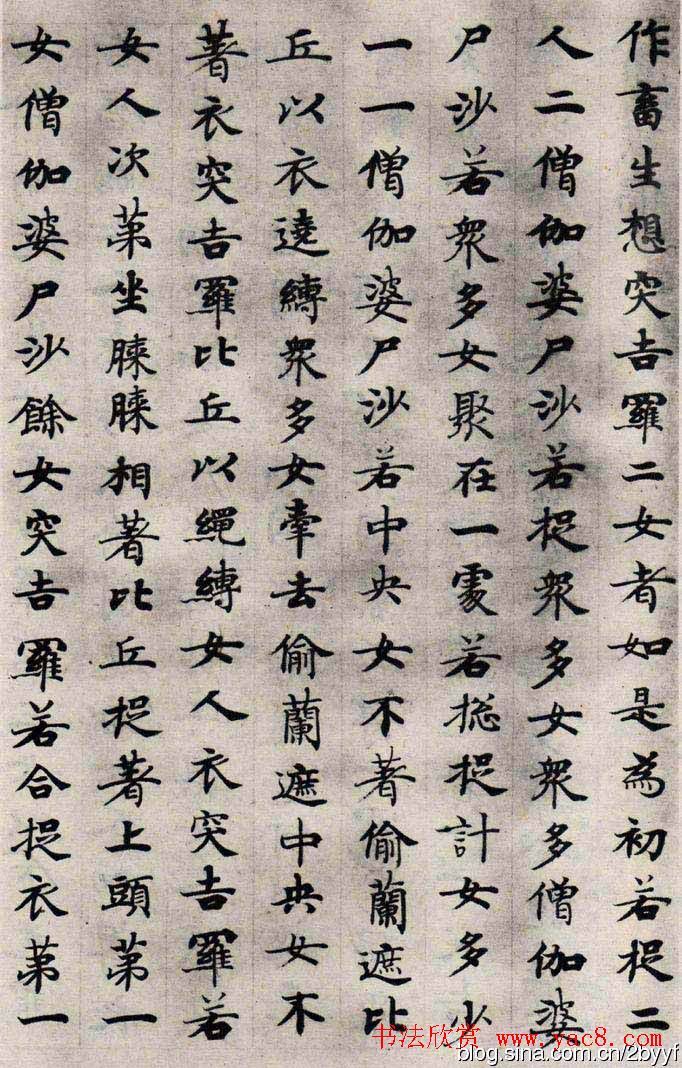 作畜生想突吉羅二女者如是為初若捉二
人二僧伽婆尸沙若捉眾多女眾多僧伽婆
尸沙若眾多女聚在一處若捴捉計女多少
一一僧伽婆尸沙若中央女不著偷蘭遮比
丘以衣遶縛眾多女牽去偷蘭遮中央女不
著衣突吉羅比丘以繩縛女人衣突吉羅若
女人次第坐膝膝相著比丘捉著上頭第一
女僧伽婆尸沙餘女突吉羅若合捉衣第一
书法欣赏 www.yac8.com
blog.sina.com.cn/2byyf